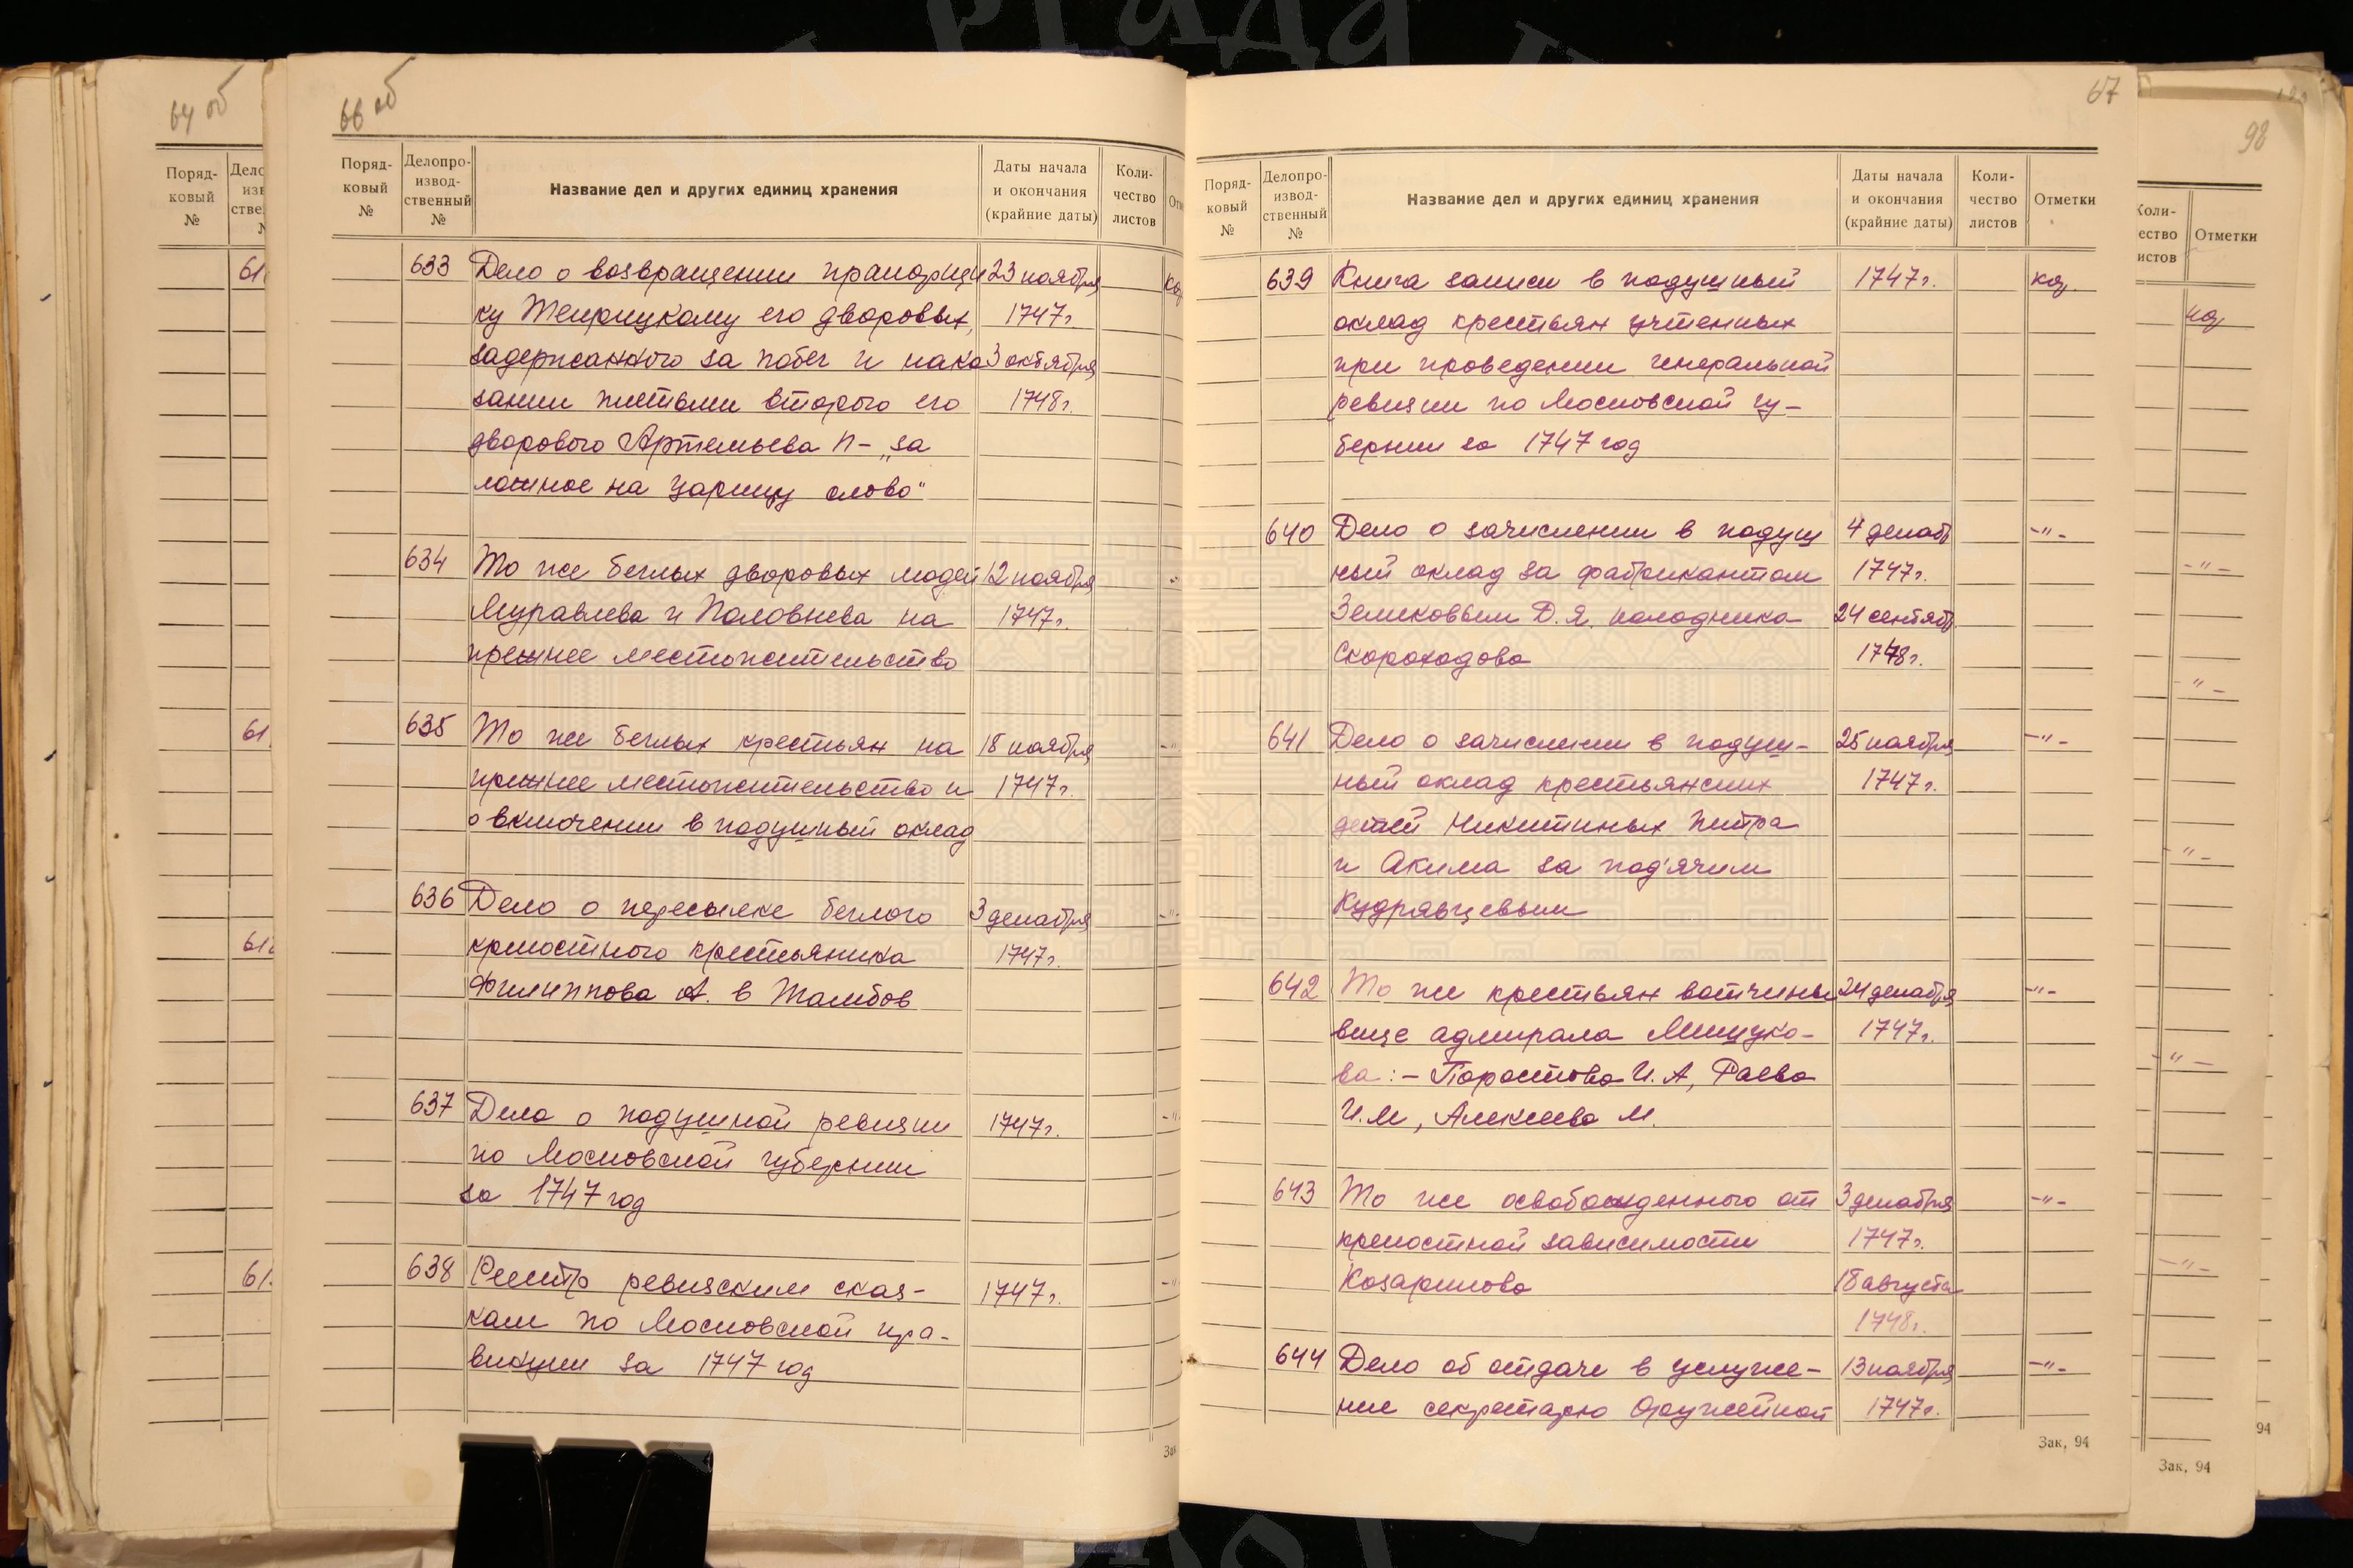 64 об
Поряд-
ковый
№
66 об
Поряд-
ковый
№
Делопро-
извод-
ственный
№
Название дел и других единиц хранения
Даты начала
и окончания
(крайние даты)
Коли-
чество
листов
633 Дело о возвращении прапорщи 23 ноября
ку его дворовых, 1747 г
задержанного за побег и нака 3 октября
зании плетьми второго его 1748 г.
дворового Артемьева П- „за
ложное на царицу слово"
634 То же беглых дворовых людей 12 ноября
Муравлева и Половнева на 1747 г.
прежнее местожительство
635 То же беглых крестьян на 18 ноября
прежнее местожительство и 1747 г.
о включении в подушный оклад
636 Дело о пересылке беглого 3 декабря
крепостного крестьянина 1747 г.
Филиппова А. в Тамбов
637 Дела о подушной ревизии 1747 г.
по Московской губернии
за 1747 год
638 Реестр ревизским сказ- 1747 г.
кам по Московской про-
винции за 1747 год
67
Поряд-
ковый
№
Делопро-
извод-
ственный
№
Название дел и других единиц хранения
Даты начала
и окончания
(крайние даты)
Коли-
чество
листов
Отметки
639 Книга записи в подушный 1747 г.
оклад крестьян учтенных
при проведении генеральной
ревизии по Московской гу-
бернии за 1747 год
640 Дело о зачислении в подуш 4 декаб -"-
ный оклад за фабрикантом 1747 г.
Земсковым Д. Я. колодника 24 сентяб
Скороходова 1748 г.
641 Дело о зачислении в подуш- 25 ноября -"-
ный оклад крестьянских 1747 г.
детей Никитиных Петра
и Акима за под'ячим
Кудрявцевым
642 То же крестьян вотчины 24 декабря -"-
вице адмирала Мишуко- 1747 г.
ва: - И. А, Раева
И. М, Алексеева М.
643 То же освобожденного от 3 декабря -"-
крепостной зависимости 1747 г.
Козаринова 18 августа
1748 г.
644 Дело об отдаче в услуже- 13 ноября -"-
ние секретарю Оружейной 1747 г.
Зак. 94
98
Отметки
94
Зак. 94